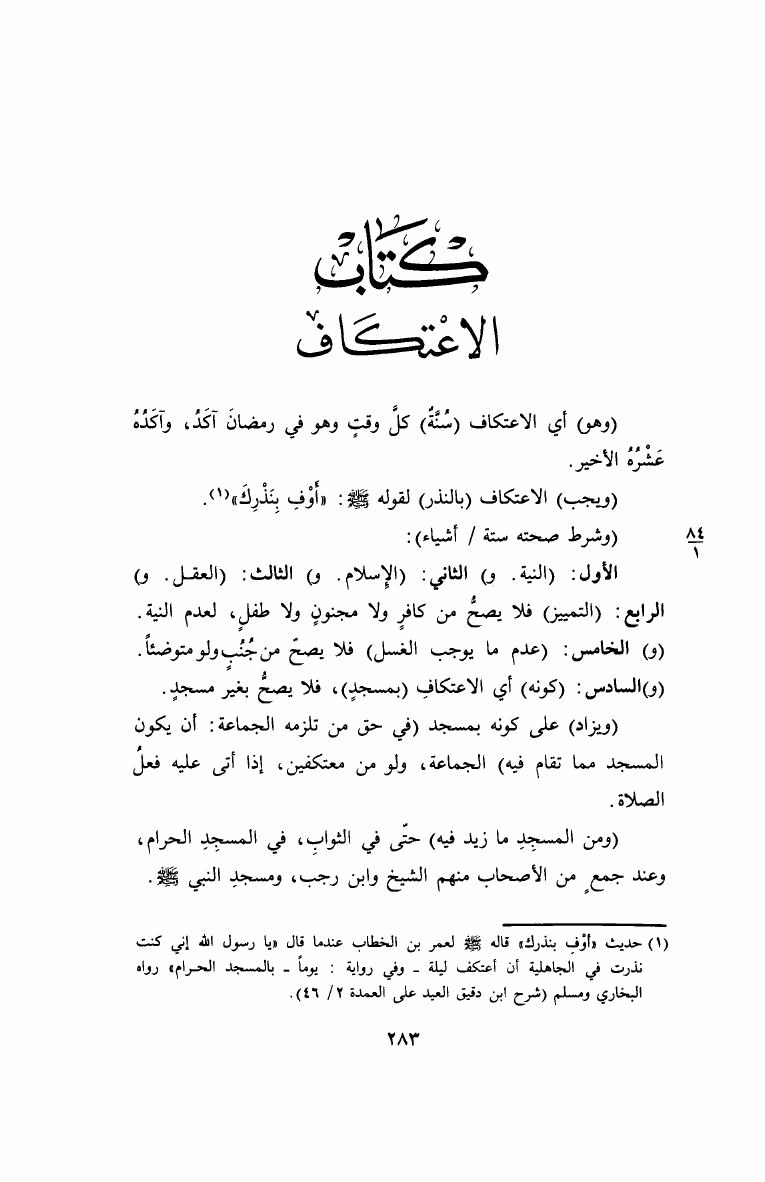 كتاب
الاعتكاف
(وهو) أي الاعتكاف (سُنَّةٌ) كلَّ وقتٍ وهو في رمضانَ آكَدُ، وآكَدُهُ
عَشْرُهُ الأخير.
(ويجب) الاعتكاف (بالنذر) لقوله ﷺ: «أَوْفِ بِنَذْرِكَ»(١).
(وشرط صحته ستة / أشياء):
٨٤
١
الأول: (النية. و) الثاني: (الإسلام. و) الثالث: (العقل. و)
الرابع: (التمييز) فلا يصحُّ من كافرٍ ولا مجنونٍ ولا طفلٍ، لعدم النية.
(و) الخامس: (عدم ما يوجب الغسل) فلا يصحّ من جُنُبٍ ولو متوضئاً.
(و)السادس: (كونه) أي الاعتكافِ (بمسجدٍ)، فلا يصحُّ بغير مسجدٍ.
(ويزاد) على كونه بمسجد (في حق من تلزمه الجماعة: أن يكون
المسجد مما تقام فيه) الجماعة، ولو من معتكفين، إذا أتى عليه فعلُ
الصلاة.
(ومن المسجِدِ ما زيد فيه) حتّى في الثوابِ، في المسجِدِ الحرام،
وعند جمعٍ من الأصحاب منهم الشيخ وابن رجب، ومسجدِ النبي ﷺ.
(١) حديث «أوْفِ بنذرك» قاله ﷺ لعمر بن الخطاب عندما قال «يا رسول الله إني كنت
نذرت في الجاهلية أن أعتكف ليلة ـ وفي رواية : يوماً ـ بالمسجد الحرام» رواه
البخاري ومسلم (شرح ابن دقيق العيد على العمدة ٢/ ٤٦).
٢٨٣